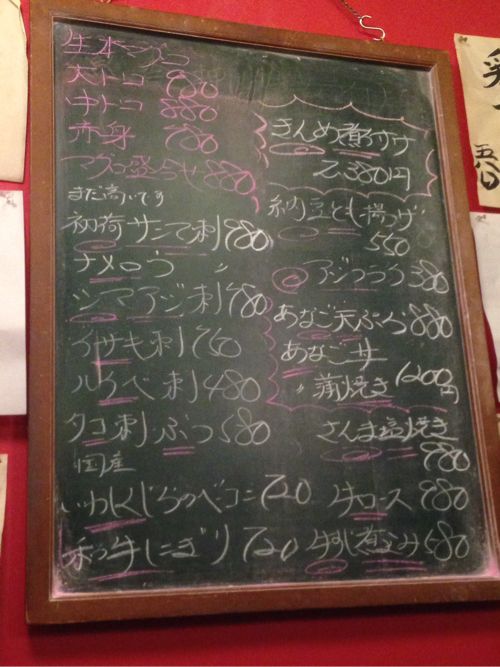 生本マグロ
大トロ 980
中トロ 880
赤身 780
マグロ盛合せ 880
まだ高いです
初荷サンマ刺 980
ナメロウ 〃
シマアジ刺 980
イサキ刺 760
ルイベ刺 480
タコ刺 ぶつ 580
国産
いわしくじらのベーコン 720
和牛にぎり 720
きんめ煮付
2,380円
納豆とも揚げ
550
アジフライ 380
あなご天ぷら 880
あなご丼
〃 蒲焼き 1200円
さんま塩焼き
980
牛ロース 980
牛すじ煮込み 580
五八〇